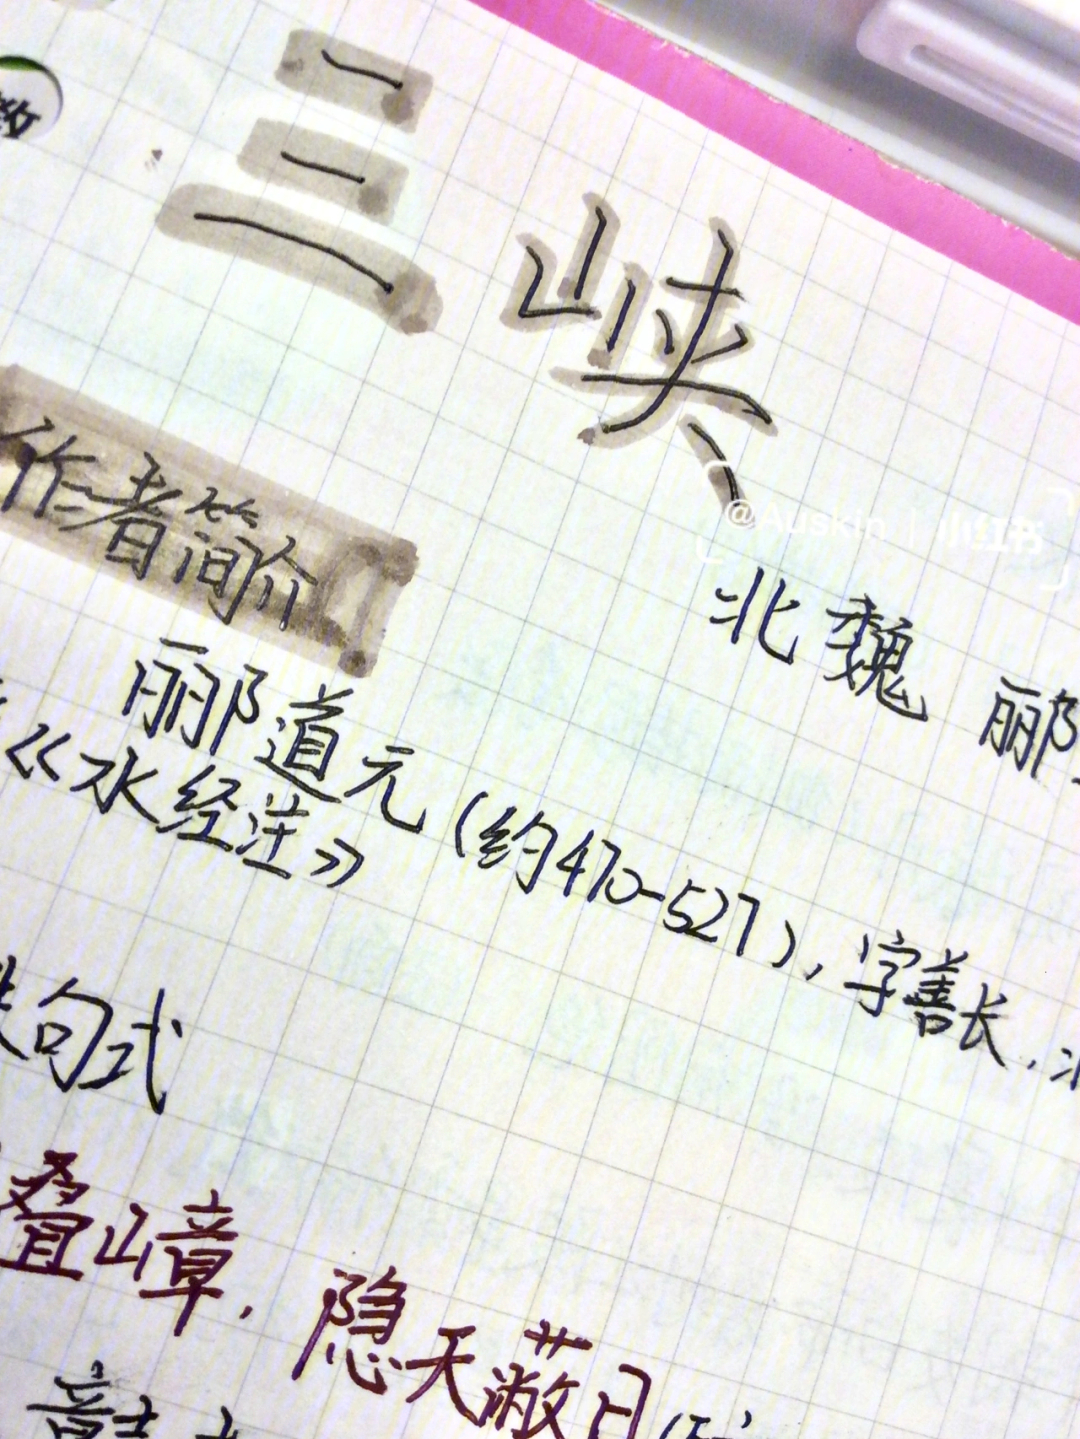 教
三峡
@Auskin 小红书
北魏 郦
作者简介
郦道元(约470-527),字善长,
《水经注》
句式
叠嶂,隐天蔽日